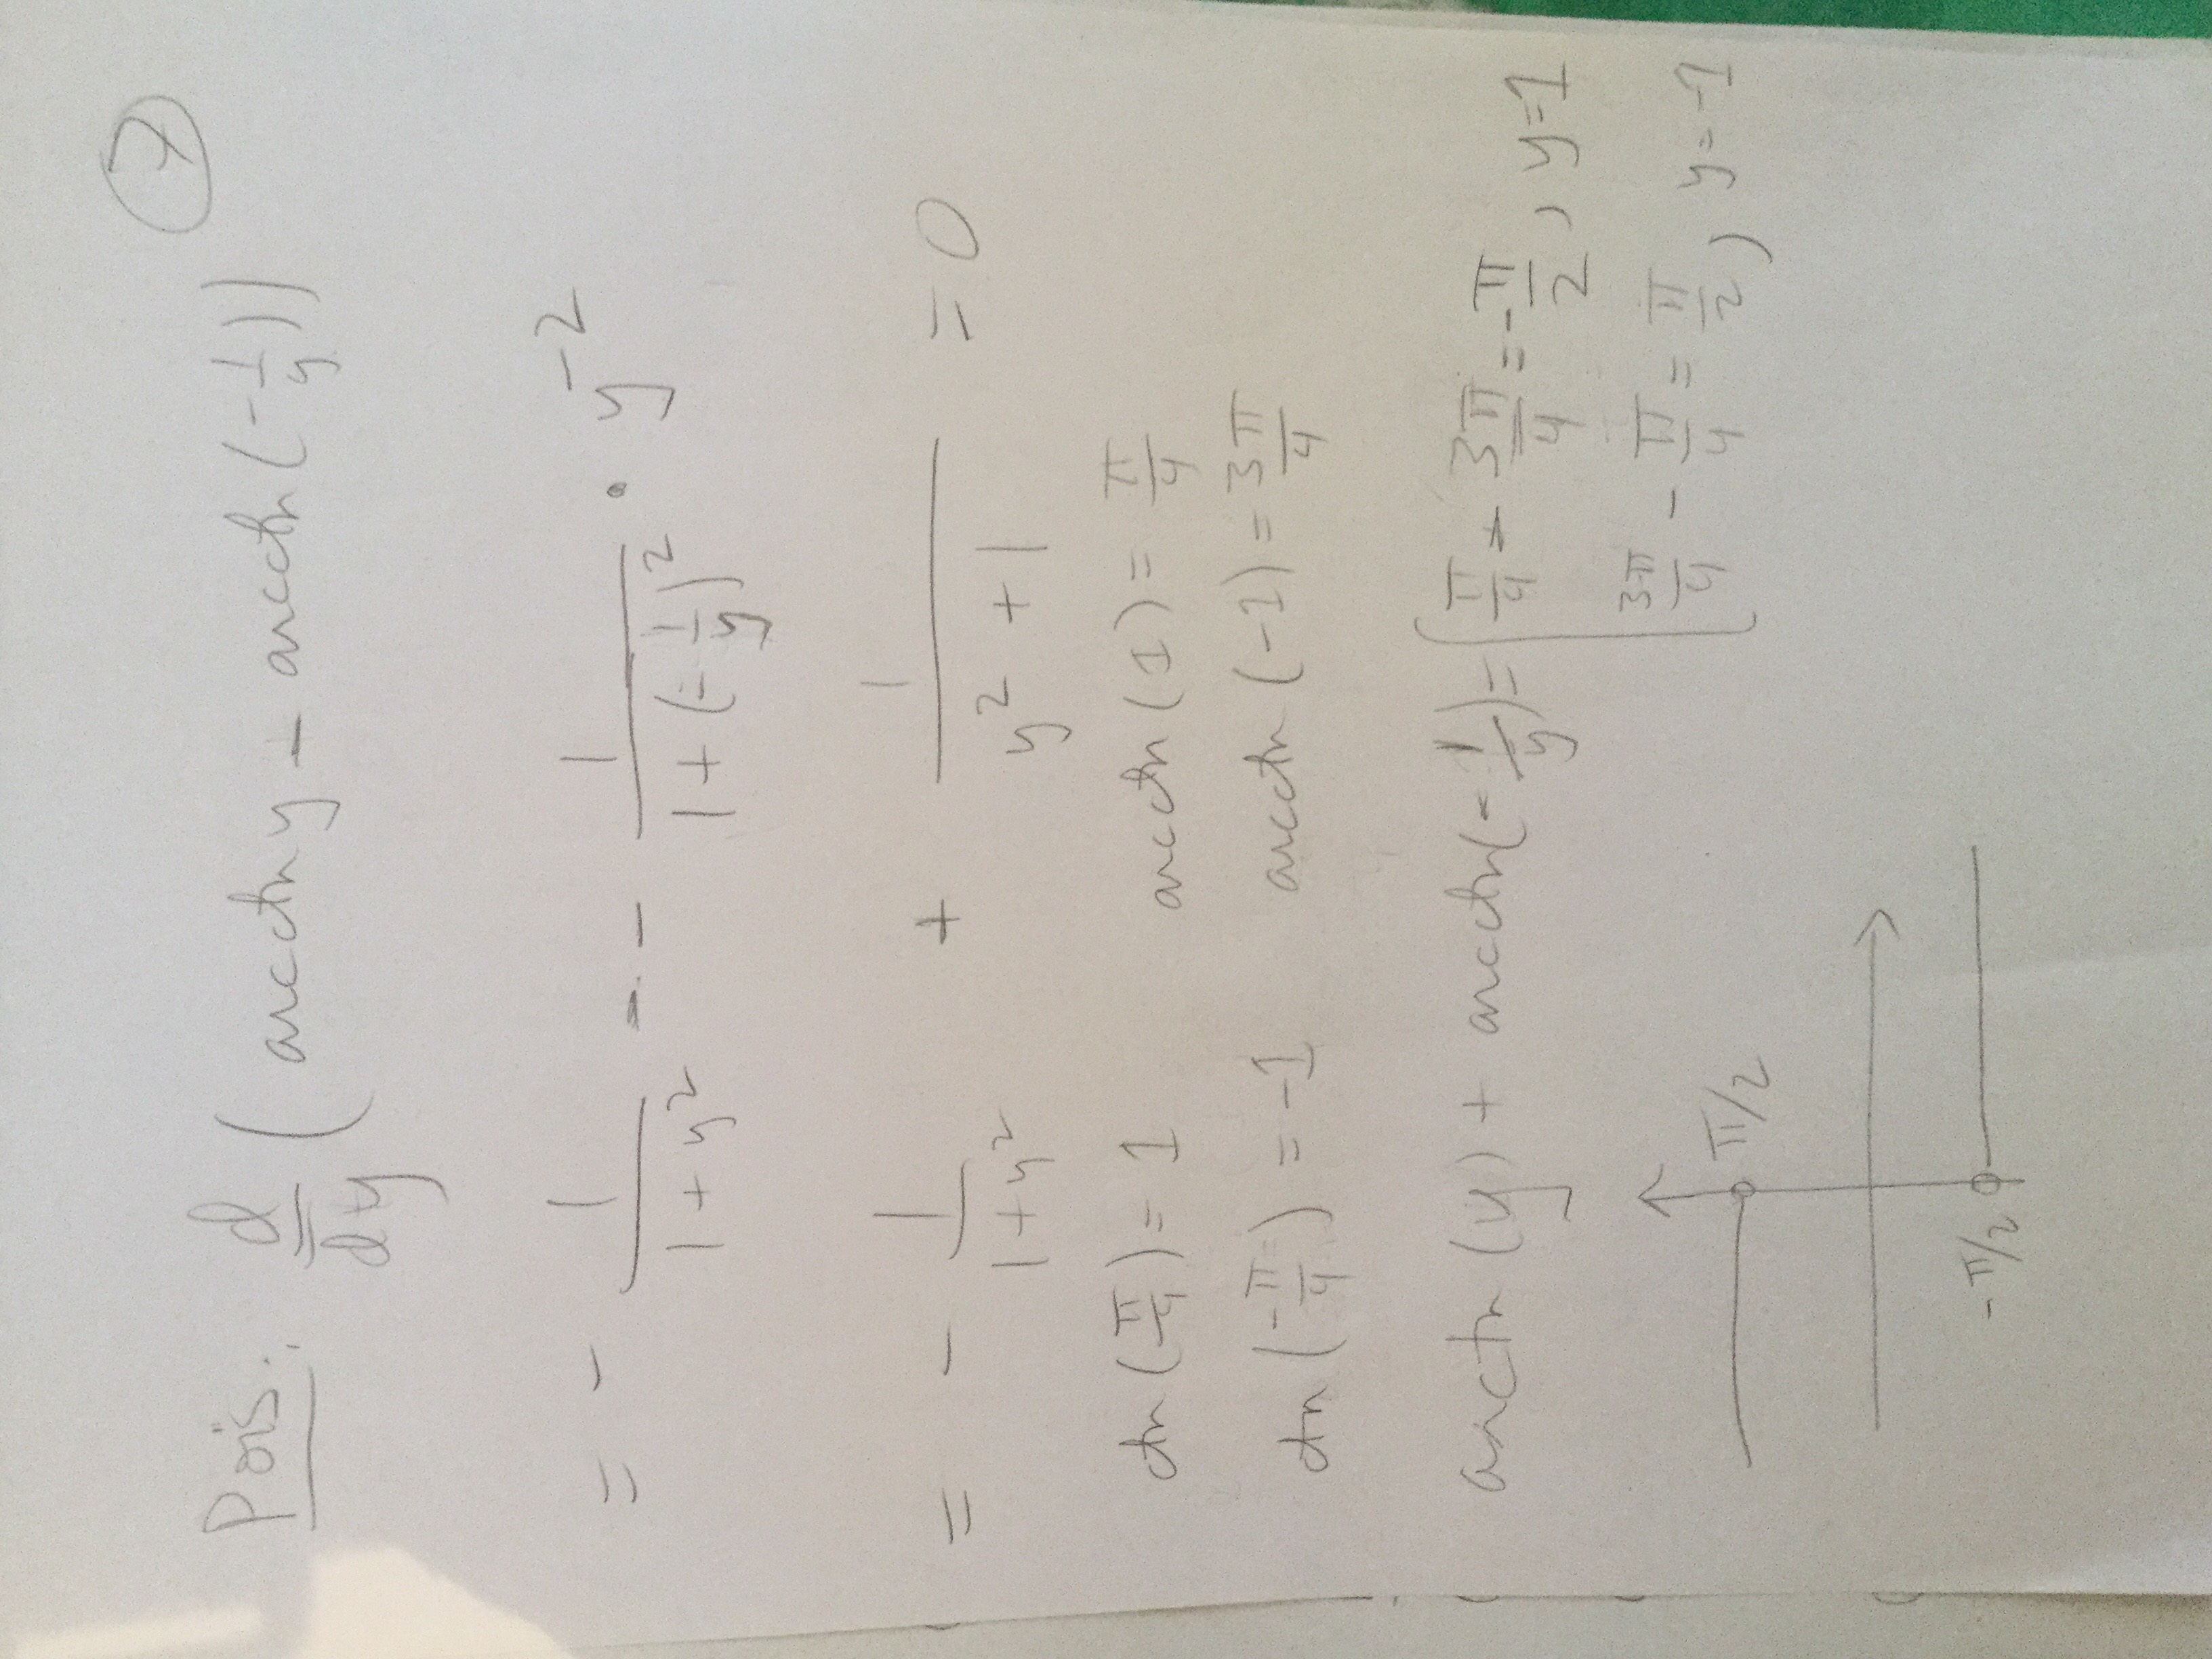 7
Pois: d/dy (arcctn y - arcctn (-1/y))
= - 1/(1+y²) - - 1/(1+(-1/y)²) · y⁻²
= - 1/(1+y²) + 1/(y²+1) = 0
ctn (π/4) = 1 arcctn (1) = π/4
ctn (-π/4) = -1 arcctn (-1) = 3π/4
arcctn (y) + arcctn (-1/y) = { π/4 - 3π/4 = -π/2, y=1
3π/4 - π/4 = π/2, y=-1
π/2
-π/2